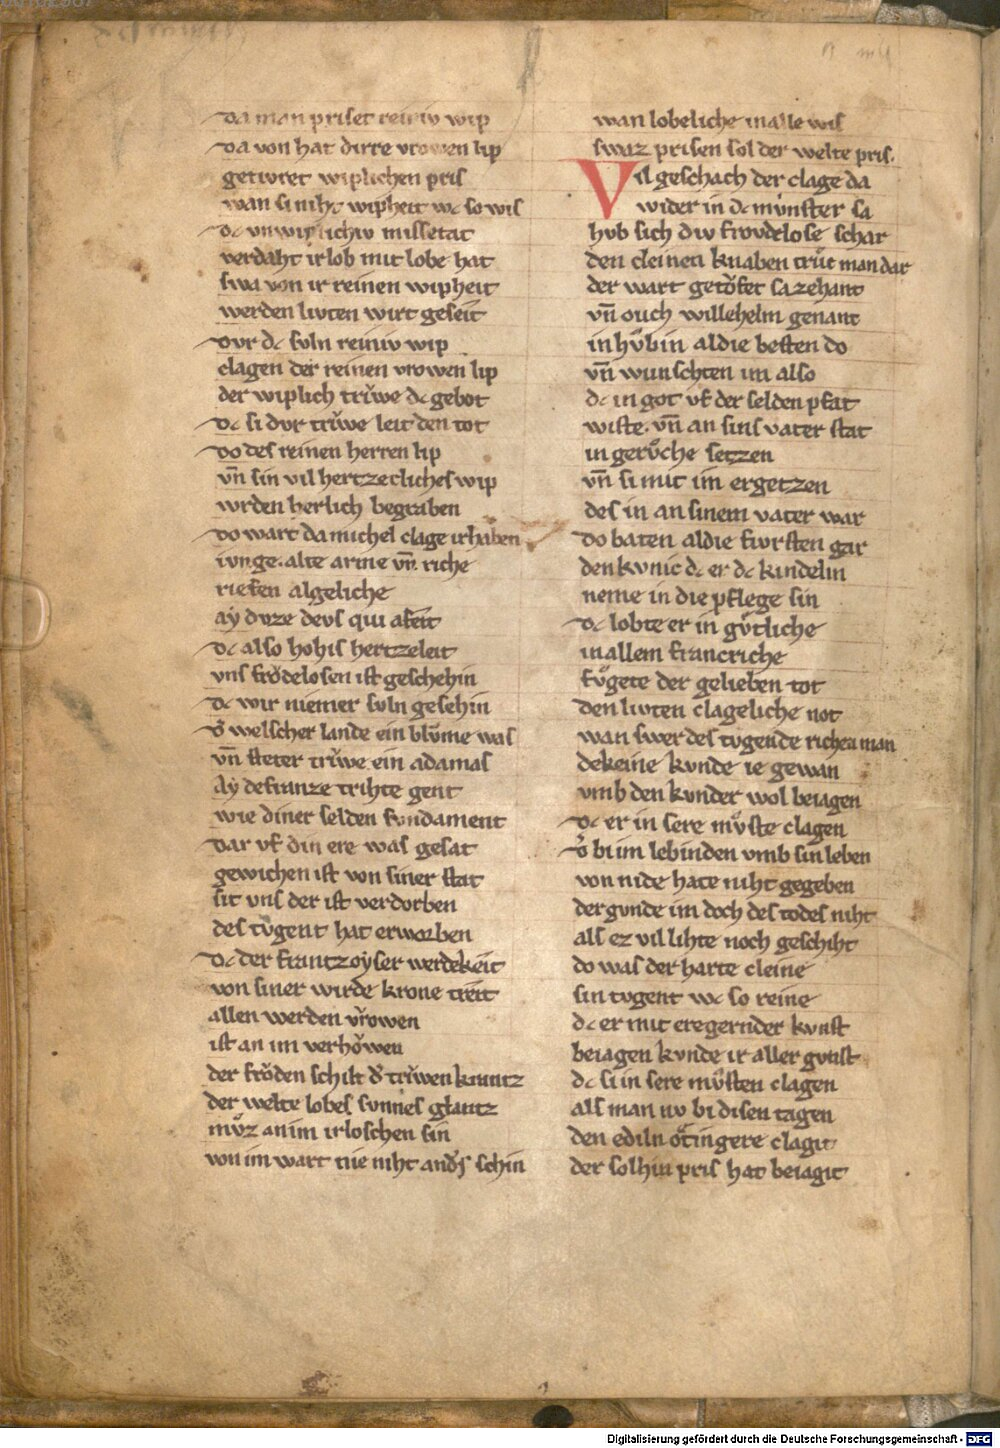 da man priset reiniv wip
da von hat dirre vrowen lip
getivret wiplichen pris
wan si niht wipheit wc so wis
dc vnwiplichiv missetat
verdaht ir lob mit lobe hat
swa von ir reinen wipheit
werden livten wirt geseit
dvr dc svln reiniv wip
clagen der reinen vrowen lip
der wiplich trv̍we dc gebot
dc si dvr trv̍we leit den tot
do des reinen herren lip
vn̄ sin vil hertzecliches wip
wrden herlich begraben
do wart da michel clage irhaben
ivnge. alte arme vn̄ riche
riefen algeliche
aẏ dvze devs qui afeit
dc also hohis hertzeleit
vns frödelosen ist geschehin
dc wir niemer svln gesehin
d̾ welscher lande ein blv̊me was
vn̄ steter trv̍we ein adamas
Aẏ defranze trihte gent
wie diner selden fvndament
dar vf din ere was gesat
gewichen ist von siner stat
sit vns der ist verdorben
des tvgent hat erworben
dc der frantzoẏser werdekeit
von siner wirde krone treit
allen werden vrowen
ist an im verhowen
der fröden schilt d̾ trv̍wen krantz
der welte lobes svnnes glantz
mv̊z an im irloschen sin
von im wart nie niht and̾s schin
wan lobeliche in alle wis
swaz prisen sol der welte pris.
Vil geschach der clage da
wider in dc mv̍nster sa
hvb sich div frovdelose schar
den cleinen knaben trv̊c man dar
der wart getöfet sa zehant
vn̄ ouch willehelm genant
in hv̊bin al die besten do
vn̄ wunschten im also
dc in got vf der selden pfat
wiste. vn̄ an sins vater stat
in gerv̊che setzen
vn̄ si mit im ergetzen
des in an sinem vater war
do baten al die fivrsten gar
den kvnic dc er dc kindelin
neme in die pflege sin
dc lobte er in gv̊tliche
in allem francriche
fv̊gete der gelieben tot
den livten clageliche not
wan swer des tvgende richen man
dekeine kvnde ie gewan
vmb den kvnder wol beiagen
dc er in sere mv̊ste clagen
d̾ bi im lebinden vmb sin leben
von nide hate niht gegeben
der gvnde im doch des todes niht
als ez vil lihte noch geschiht
do was der harte cleine
sin tvgent wc so reine
dc er mit eregernder kvnst
beiagen kvnde ir aller gvnst
dc si in sere mv̊sten clagen
als man nv bi disen tagen
den ediln ötingere clagit
der solhin pris hat beiagit
Digitalisierung gefördert durch die Deutsche Forschungsgemeinschaft - DFG